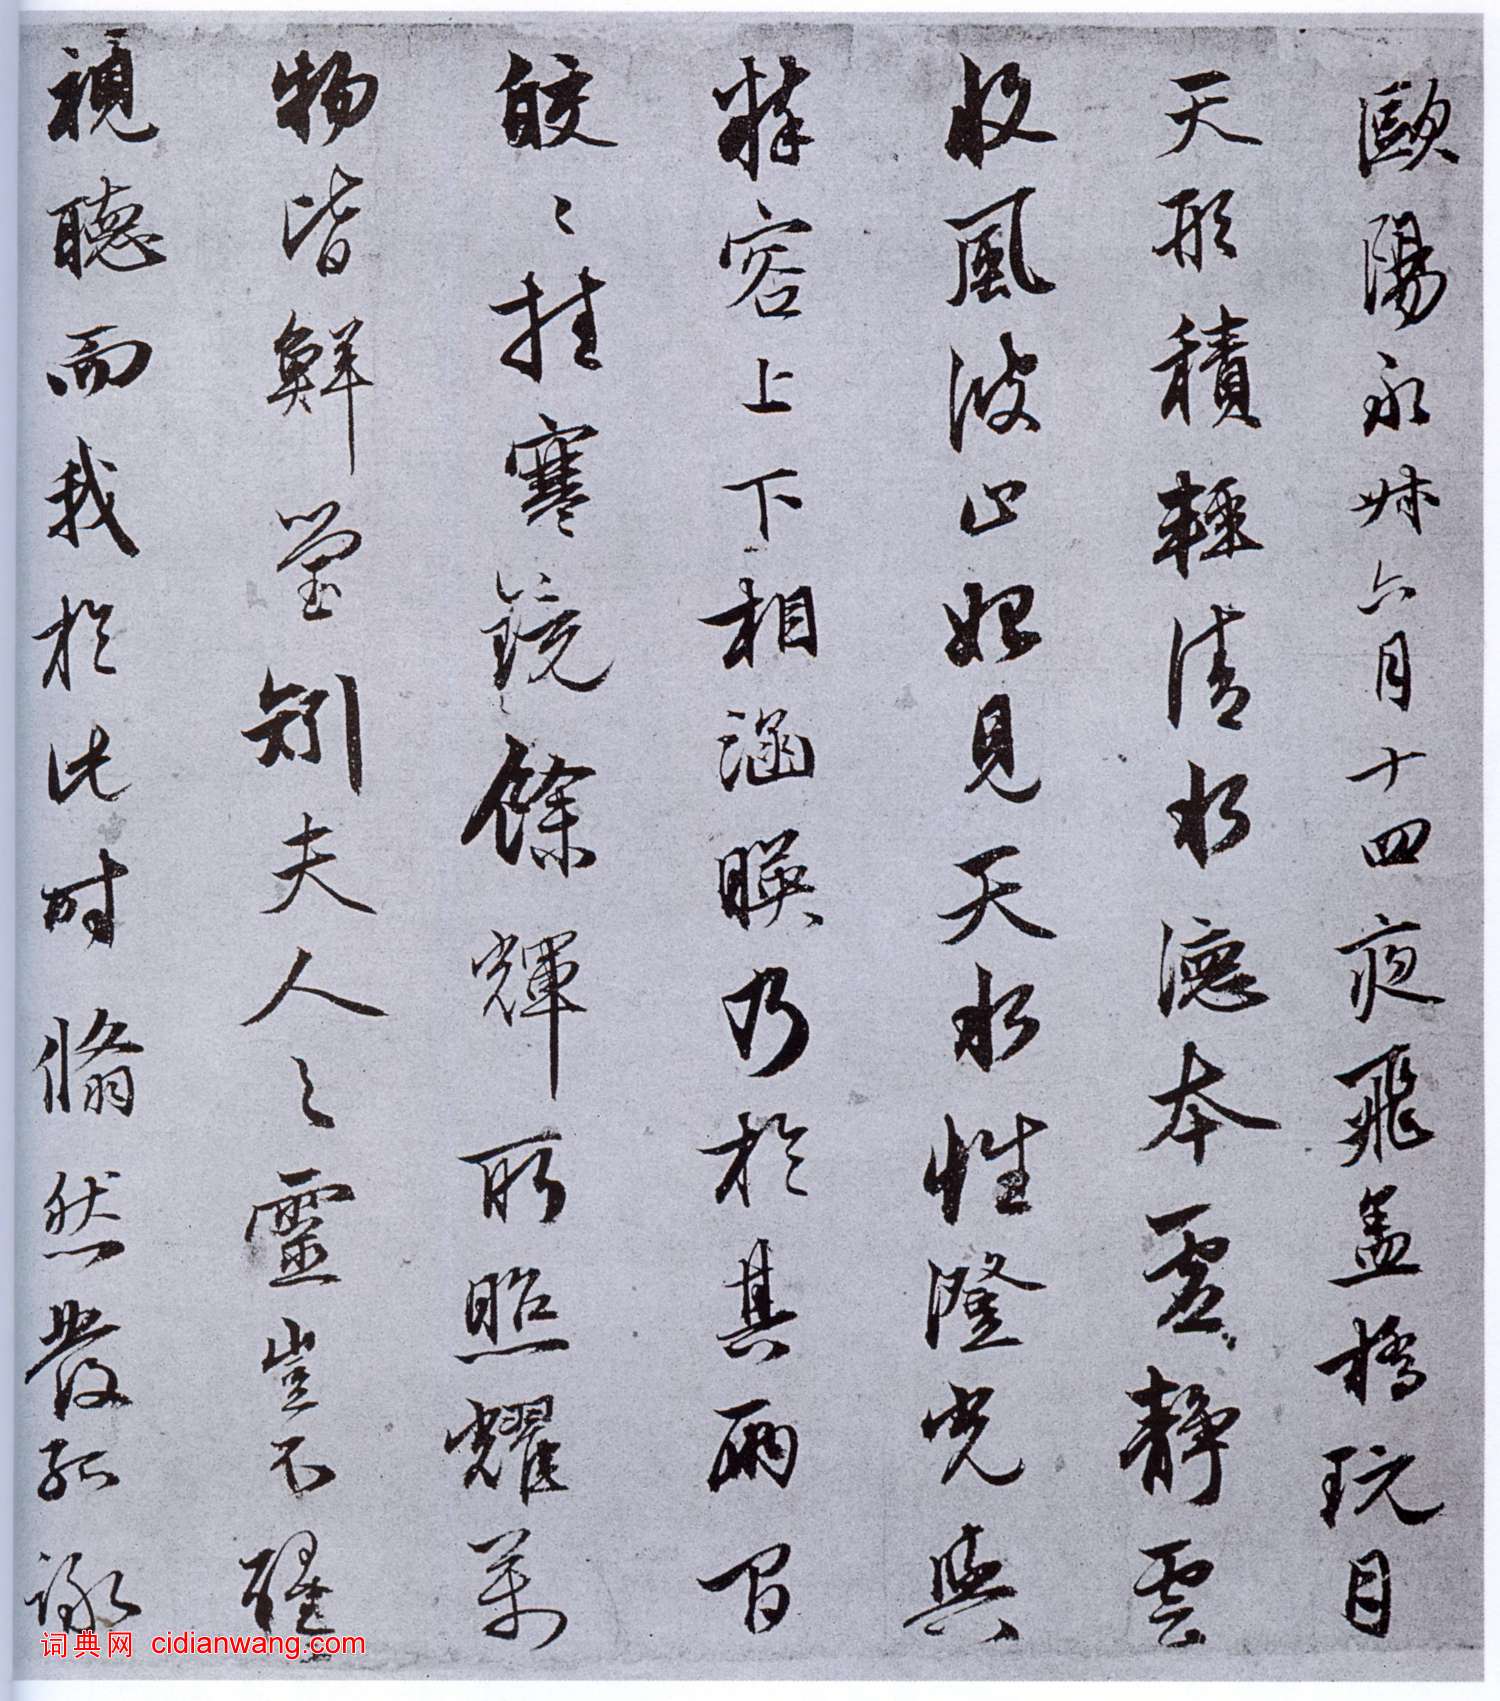 歐陽永叔六月十四夜飛蓋橋玩月
天形積輕清水德本虛靜雲
收風波止始見天水性澄光與
粹容上下相涵映乃於其兩間
皎皎掛寒鏡餘輝所照耀萬
物皆鮮瑩矧夫人之靈豈不醒
視聽而我於此時翛然發孤詠
词典网 cidianwang.com